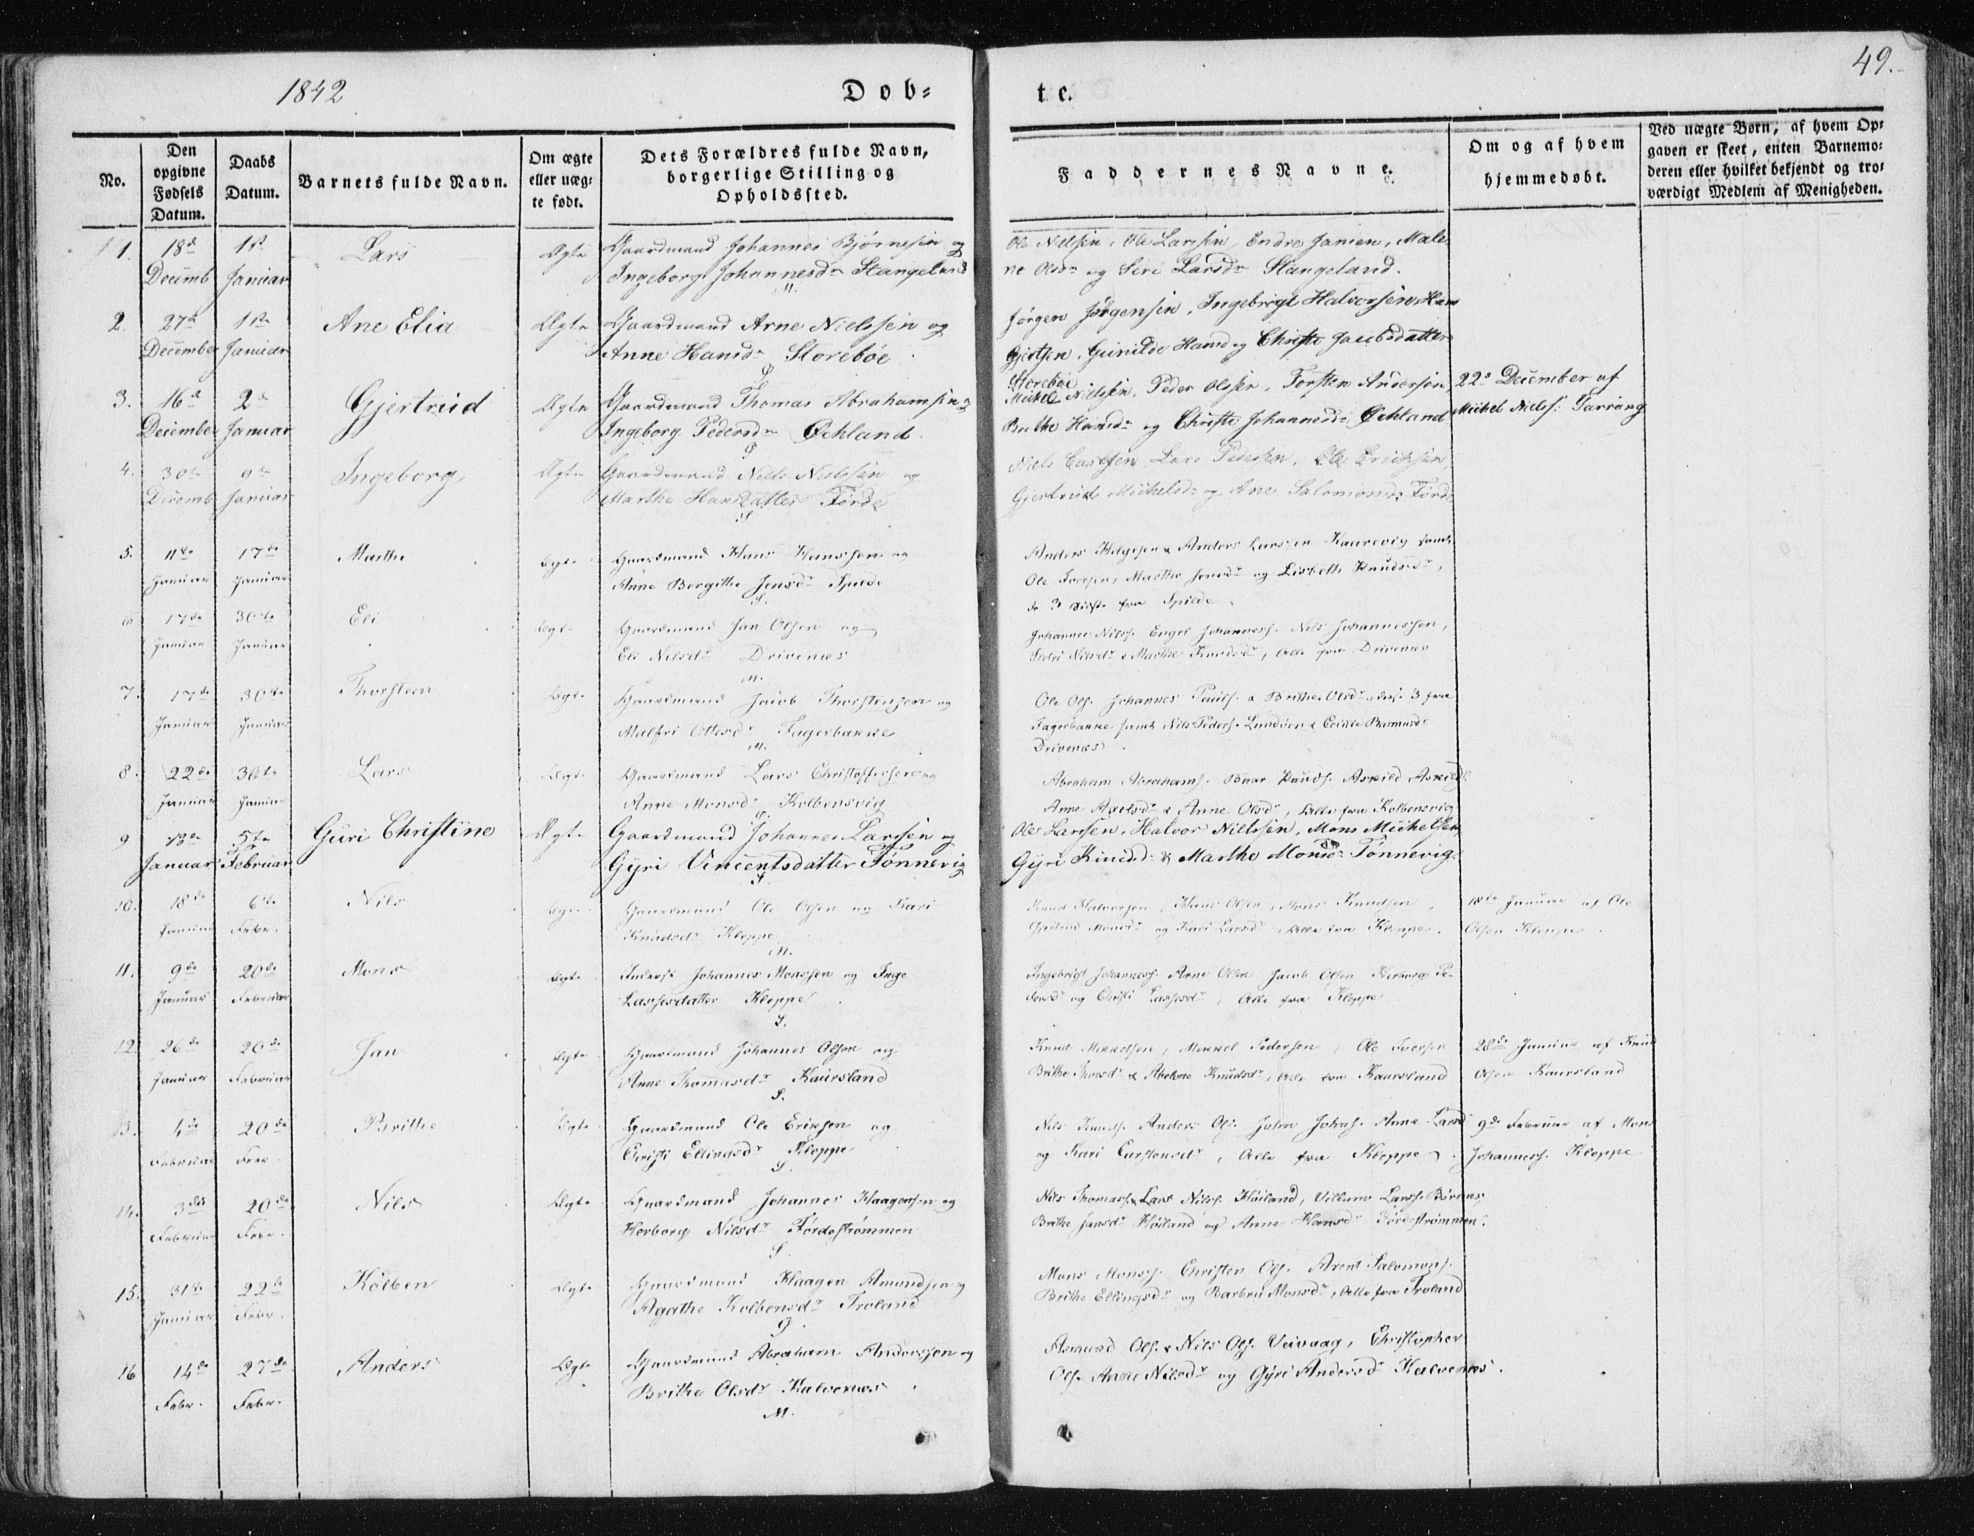 1842
Døb-
te.
49.
No.
Den opgivne Fødsels Datum.
Daabs Datum.
Barnets fulde Navn.
Om ægte eller uægte født.
Dets Forældres fulde Navn, borgerlige Stilling og Opholdssted.
Faddernes Navne.
Om og af hvem hjemmedøbt.
Ved uægte Børn, af hvem Opgaven er skeet, enten Barnemoderen eller hvilket bekjendt og troværdigt Medlem af Menigheden.
1. 18de Decemb 1ste Januar Lars Ægte Gaardmand Johannes Bjørnsen og
Ingeborg Johannesdr Stangeland
M.
Ole Nielsen, Ole Larsen, Endre Jansen, Male
ne Olsdr og Siri Larsdr Stangeland.
2. 27de December 1ste Januar Ane Elia Ægte Gaardmand Arne Nielssen og
Anne Hansdr Storebøe.
Jørgen Jørgensen, Ingebrigt Halvorsen, Hans
Gjertsen, Gunilde Hansd og Christi Jacobsdatter
Storebøe
3. 16de December 2de Januar Gjertrud Ægte Gaardmand Thomas Abrahamsen
Ingeborg Pedersdr Øckland.
Michel Nielsen, Peder Olssen, Torsten Andersen
Brithe Hansdr og Christi Johannesdr Øckland
22de December af
Michel Niels: Tarrang
4. 30te Decemb 9de Januar Ingeborg Ægte Gaardmand Niels Nielssen og
Marthe Hansdatter Førde
S
Niels Carlsen, Lars Pedersen, Ole Ericksen
Gjertrud Michelsdr og Ane Salomonsdr Førde
5. 11te Januar 17de Januar Marthe Ægte Gaardmand Hans Hanssen og
Anne Bergithe Jensdr Spilde
S.
Anders Helgesen & Anders Larssen Kaurevig samt
Ole Iversen, Marthe Jensdr og Lisbeth Knudsdr,
de 3 sidste fra Spilde.
6 17de Januar 30te Januar Eli Ægte Gaardmand Jan Olsen og
Eli Nilsdr Drivenæs
M.
Johannes Nils. Engel Johanness. Nils Johannessen,
Nilsdr & Marthe Knudsdr, Alle fra Drivenæs
7. 17de Januar 30te Januar Thorsten Ægte Gaardmand Jacob Thorstensen og
Malfri Ottersdr Fagerbakke
M.
Ole Ols. Johannes Pauls. & Brithe Olsdr, disse 3 fra
Fagerbakke samt Nils Peders. Lundøen &
Drivenæs.
8. 22de Januar 30te Januar Lars Ægte Gaardmand Lars Christoffersen og
Anne Monsdr Kolbensvig
Abraham Abrahams. Baar Knuds. Askild Askilds
Anne Axelsdr & Anne Olsdr, Alle fra Kolbensvig
9 13de Januar 5te Februar Guri Christine Ægte Gaardmand Johannes Larssen og
Gyri Vincentsdatter Tønnevig
S
Ole Larssen, Halvor Nielssen, Mons Michelsen
Gyri Knudsd & Marthe Monsdr Tønnevig.
10. 18de Januar 6te Febr. Nils Ægte Gaardmand Ole Olsen og Kari
Knudsdr Kloppe
M.
Knud Halvorsen, Hans Olsen, Mons Knudsen,
Monsdr og Kari Larsdr, Alle fra Kloppe.
18de Januar af Ole
Olsen Kloppe.
11. 9de Januar 20de Februar Mons Ægte Inderst Johannes Monssen og Inge
Lassesdatter Kloppe
S.
Ingebrigt Johanness. Arne Olsen Jacob Olsen Herborg Pe-
dersdr og Christi Lassesdr, Alle fra Kloppe
12. 26de Januar 20de Februar Jan Ægte Gaardmand Johannes Olsen og
Anne Thomasdr Kaursland
S.
Knud Mikkelsen, Mikkel Pedersen, Ole Iversen
Brithe Thorsdr & Knudsdr, Alle fra Kaursland
28de Januar af Knud
Olsen Kaursland
13. 4de Februar 20de Febr. Brithe Ægte Gaardmand Ole Eriksen og
Christi Ellingsdr Kloppe
S.
Nils Knuds. Anders Ols. John Johns. Anne Larsd
og Kari Carstensdr, Alle fra Kloppe.
9de Februar af Mons
Johanness. Kloppe
14. 3die Februar 20de Febr. Nils Ægte Gaardmand Johannes Haagensen og
Herborg Nilsdr Førdestrømmen
S.
Nils Thomass. & Lars Nilss. Høiland, Villum Larss. Børnæs,
Brithe Jansdr Høiland og Anne Hansdr Førdestrømmen.
15. 31te Januar 22de Febr. Kolben Ægte Gaardmand Haagen Amundsen og
Agathe Kolbensdr Froland
S.
Mons Monss. Christen Ols. Arent Salomons.
Brithe Ellingsdr og Barbru Monsdr, Alle fra Froland
16 14de Febr. 27de Febr. Anders Ægte Gaardmand Abraham Anderssen og
Brithe Olsdr Kalvenæs.
M.
Asmund Ols. & Nils Ols. Veivaag, Christopher
Ols. Anne Nilsdr og Gyri Andersdr Kalvenæs.